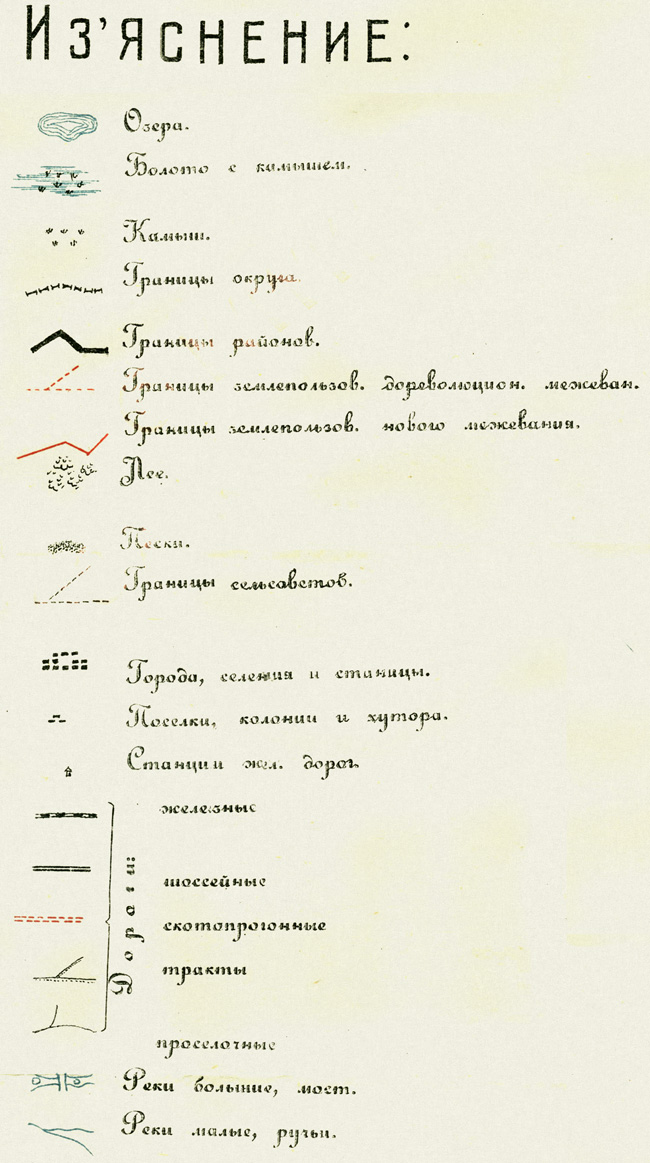 Из’яснение:
Озера.
Болото с камышем.
Камыш.
Границы округа.
Границы районов.
Границы землепользов. дореволюцион. межеван.
Границы землепользов. нового межевания.
Лес.
Пески.
Границы сельсаветов.
Города, селения и станицы.
Поселки, колонии и хутора.
Станции жел. дорог.
Дороги:
железные
шоссейные
скотопрогонные
тракты
проселочные
Реки большие, мост.
Реки малые, ручьи.